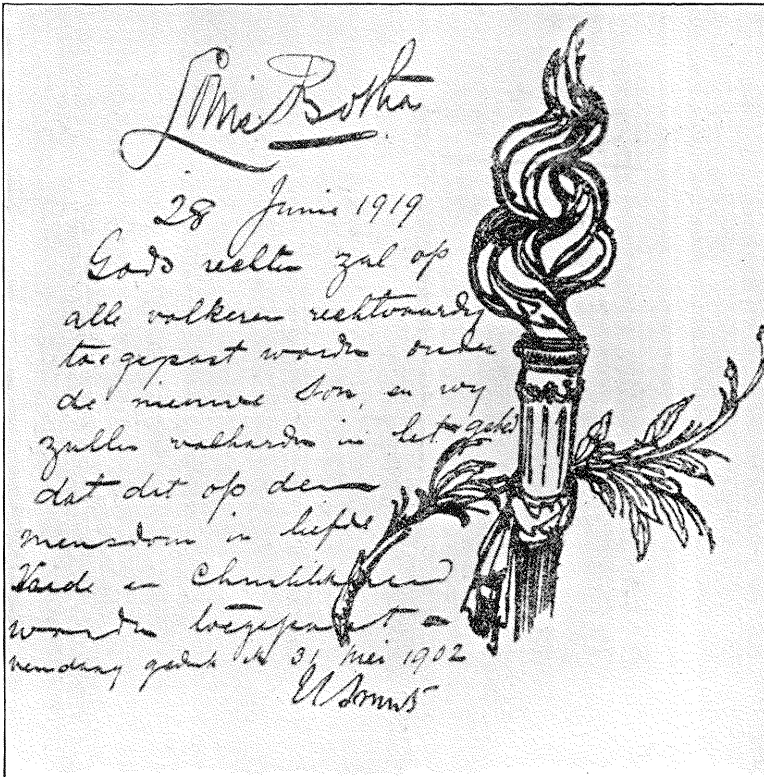 Louis Botha
28 Junie 1919
Gods rechte zal op
alle volkeren rechtvaardig
toegepast worden onder
de nieuwe Son, en wy
zullen volharden in het gebed
dat dit op den
mensdom in liefde
Vrede en
worden toegepast -
vandaag ik 31 Mei 1902